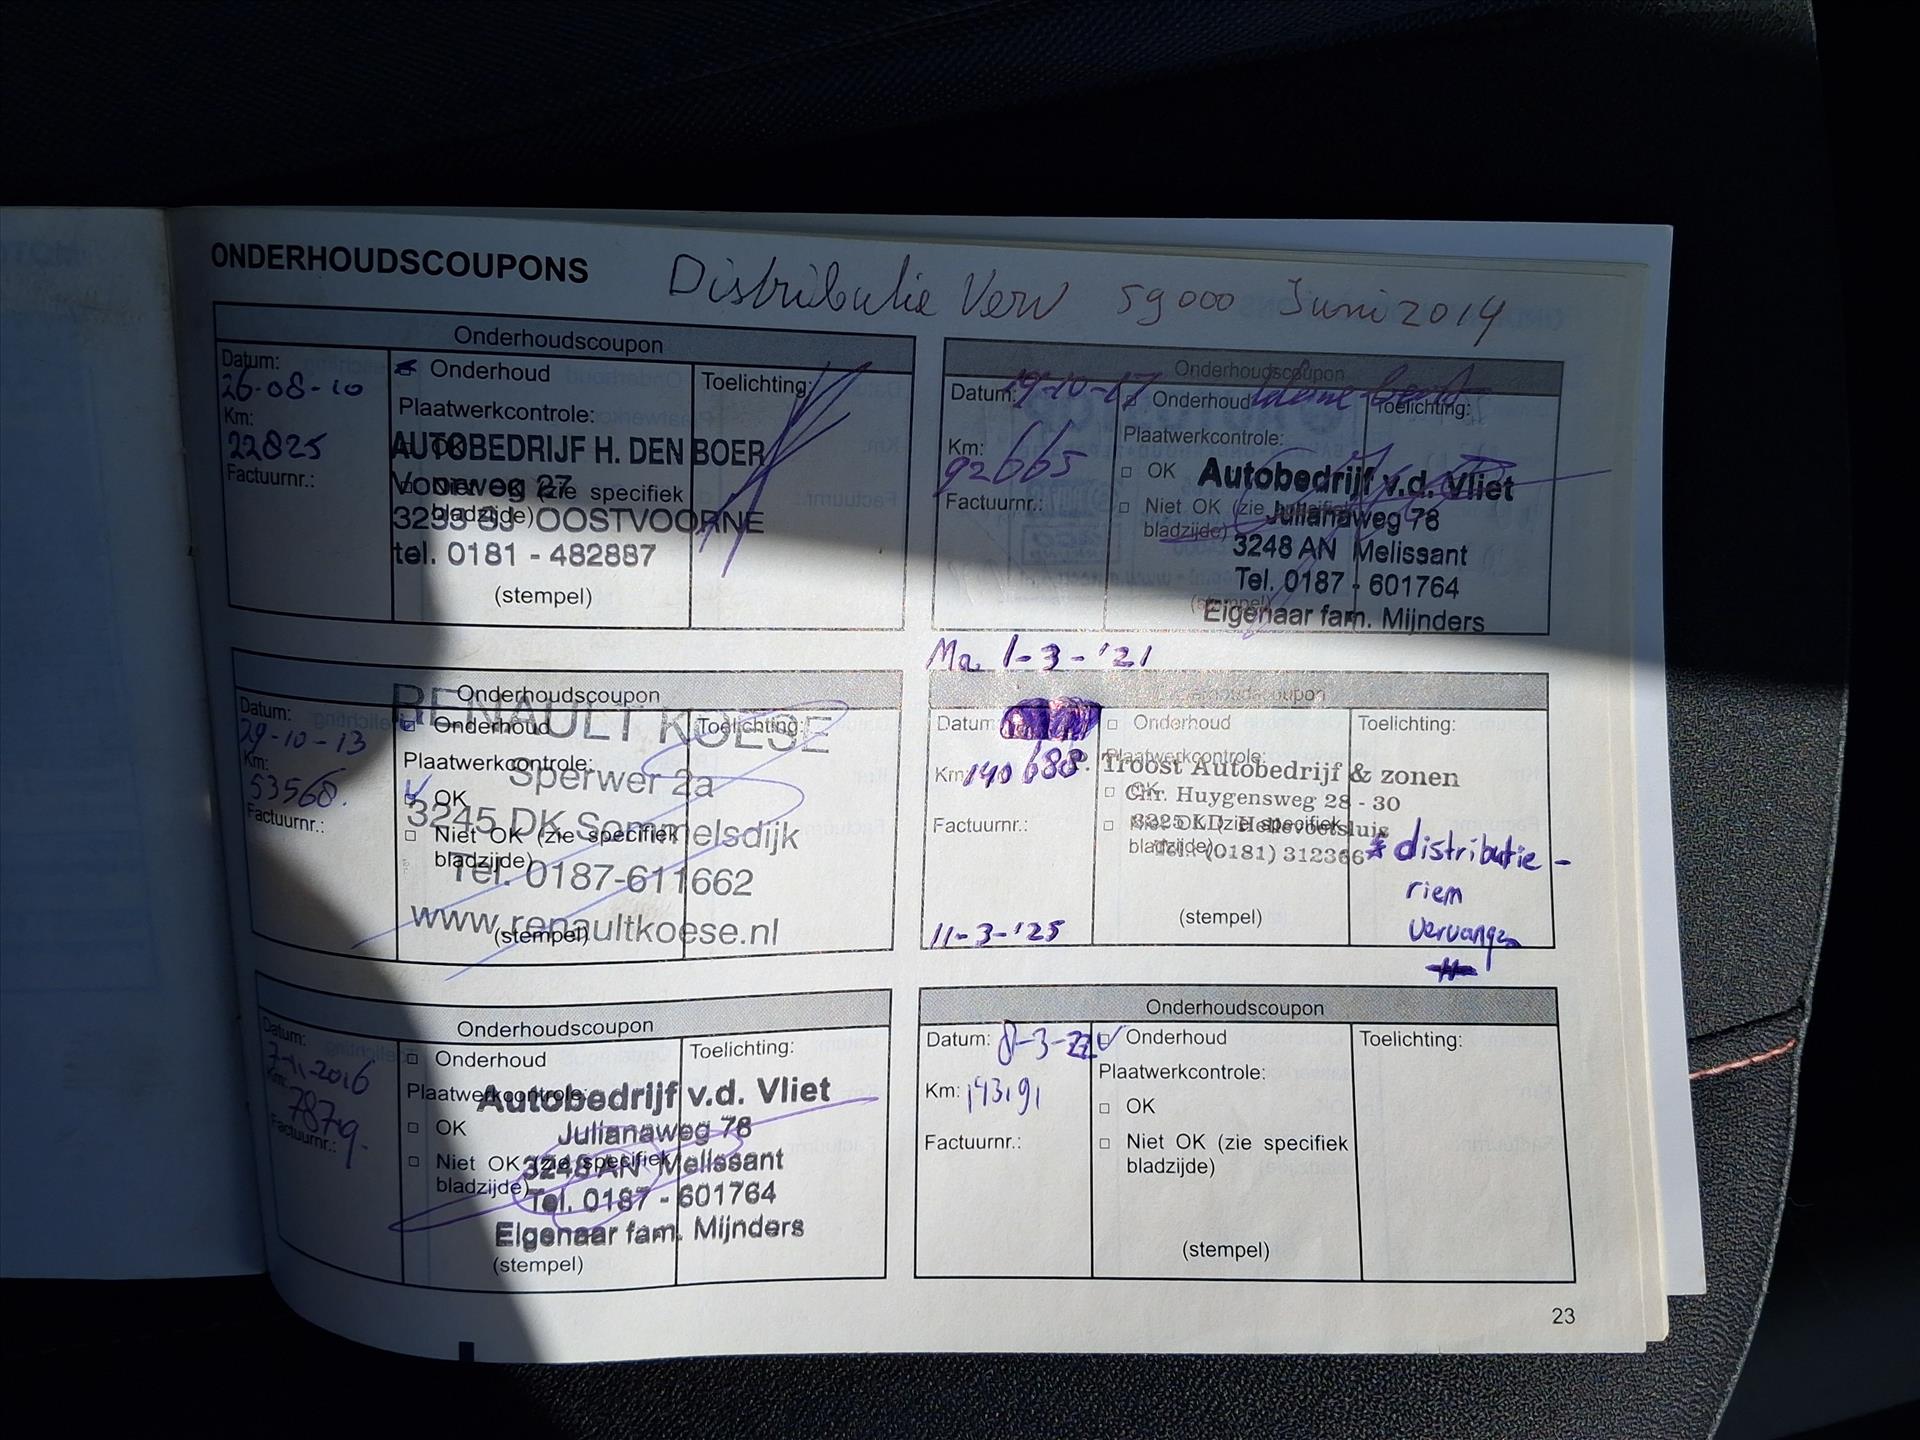 ONDERHOUDSCOUPONS
Distributie Verv 59000 Juni 2014
Onderhoudscoupon
Datum:
26-08-10
Km:
22825
Factuurnr.:
Onderhoud
Plaatwerkcontrole:
OK
Niet OK (zie specifiek
bladzijde)
AUTOBEDRIJF H. DEN BOER
Voorweg 27
OOSTVOORNE
tel. 0181 - 482887
(stempel)
Toelichting:
Onderhoudscoupon
Datum:
29-10-13
Km:
53568.
Factuurnr.:
Onderhoud
Plaatwerkcontrole:
OK
Niet OK (zie specifiek
bladzijde)
RENAULT KOESE
Sperwer 2a
3245 DK Sommelsdijk
Tel. 0187-611662
www.renaultkoese.nl
(stempel)
Toelichting:
Onderhoudscoupon
Datum:
7-11-2016
Km:
78719.
Factuurnr.:
Onderhoud
Plaatwerkcontrole:
OK
Niet OK (zie specifiek
bladzijde)
Autobedrijf v.d. Vliet
Julianaweg 78
3248 AN Melissant
Tel. 0187 - 601764
Eigenaar fam. Mijnders
(stempel)
Toelichting:
Onderhoudscoupon
Datum: 19-10-17
Km:
92665
Factuurnr.:
Onderhoud kleine beurt
Plaatwerkcontrole:
OK
Niet OK (zie specifiek
bladzijde)
Autobedrijf v.d. Vliet
Julianaweg 78
3248 AN Melissant
Tel. 0187 - 601764
Eigenaar fam. Mijnders
(stempel)
Toelichting:
Ma. 1-3-'21
Onderhoudscoupon
Datum:
Km: 140688
Factuurnr.:
11-3-'25
Onderhoud
Plaatwerkcontrole:
OK
Niet OK (zie specifiek
bladzijde)
P. Troost Autobedrijf & zonen
Chr. Huygensweg 28 - 30
3225 LD Hellevoetsluis
Tel. (0181) 312366
(stempel)
Toelichting:
* distributie-
riem
vervangen
Onderhoudscoupon
Datum: 8-3-22
Km: 143.91
Factuurnr.:
Onderhoud
Plaatwerkcontrole:
OK
Niet OK (zie specifiek
bladzijde)
(stempel)
Toelichting:
23